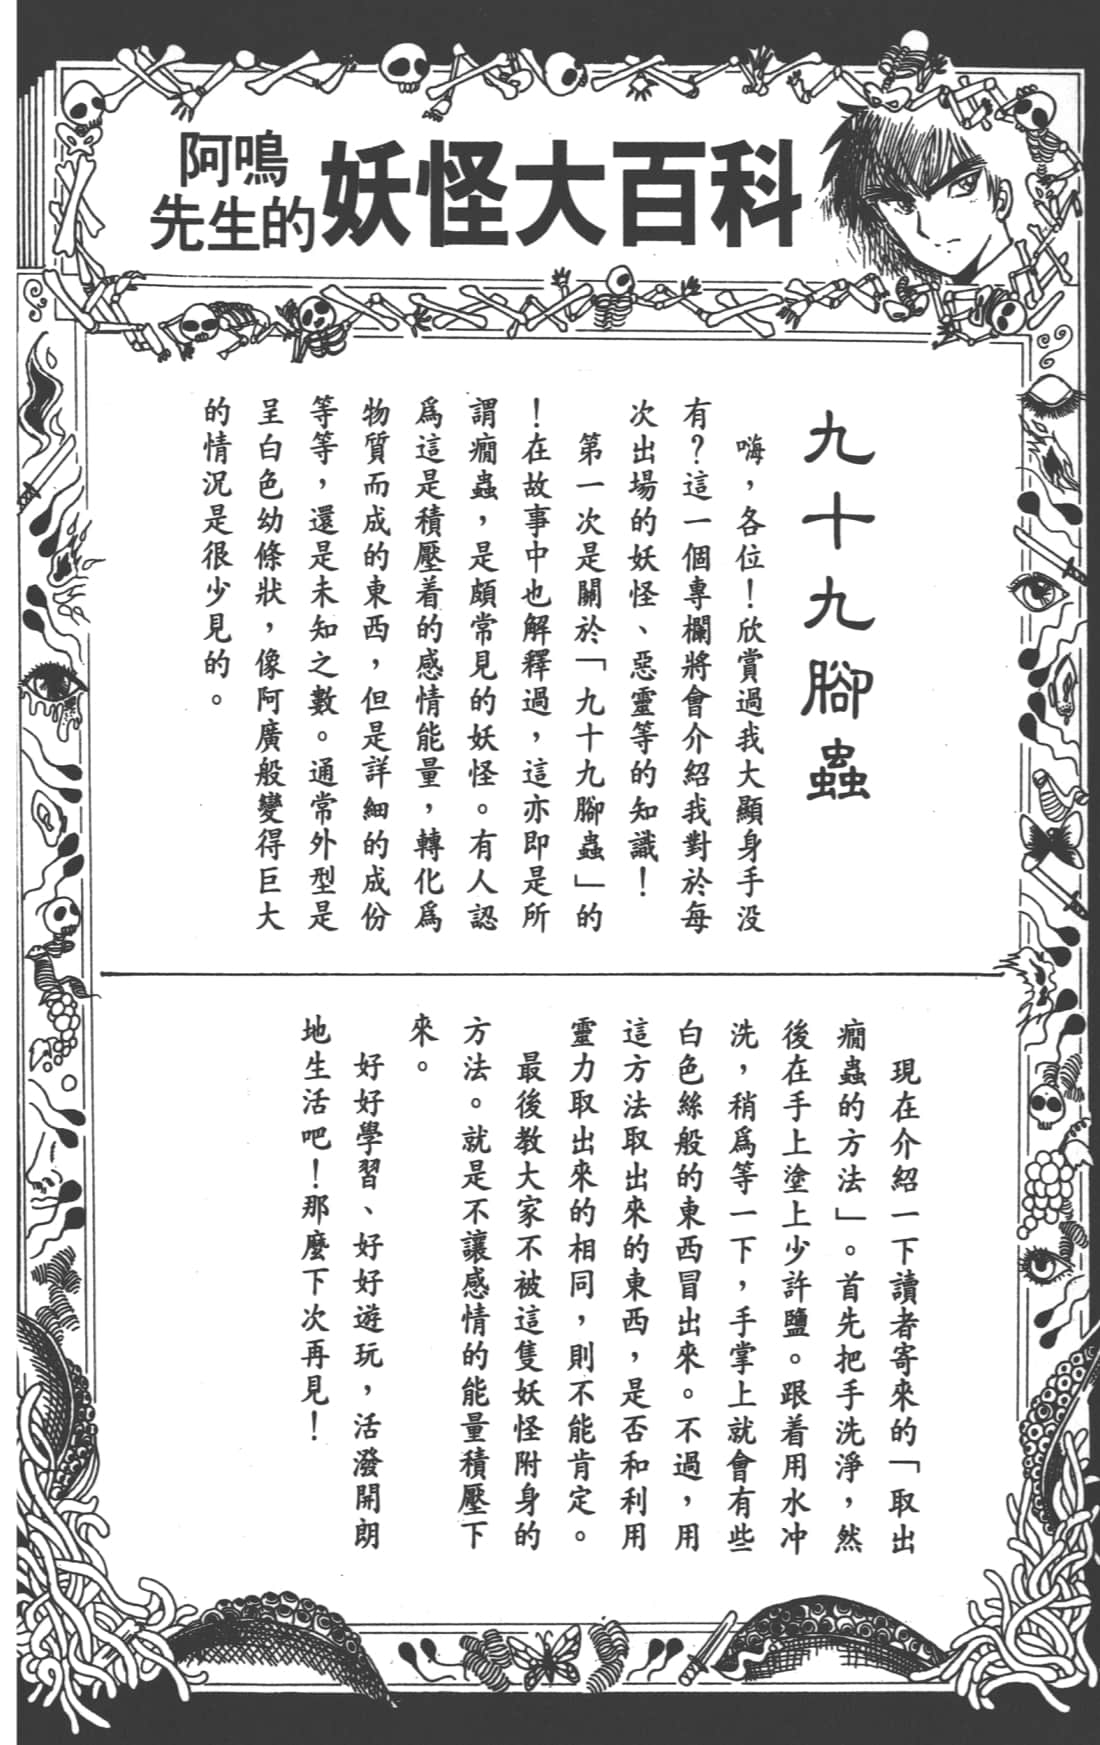 阿鳴
先生的
妖怪大百科
九十九腳蟲
嗨，各位！欣賞過我大顯身手没
有？這一個專欄將會介紹我對於每
次出場的妖怪、惡靈等的知識！
第一次是關於「九十九腳蟲」的
！在故事中也解釋過，這亦即是所
謂癇蟲，是頗常見的妖怪。有人認
爲這是積壓着的感情能量，轉化爲
物質而成的東西，但是詳細的成份
等等，還是未知之數。通常外型是
呈白色幼條狀，像阿廣般變得巨大
的情況是很少見的。
現在介紹一下讀者寄來的「取出
癇蟲的方法」。首先把手洗淨，然
後在手上塗上少許鹽。跟着用水冲
洗，稍爲等一下，手掌上就會有些
白色絲般的東西冒出來。不過，用
這方法取出來的東西，是否和利用
靈力取出來的相同，則不能肯定。
最後教大家不被這隻妖怪附身的
方法。就是不讓感情的能量積壓下
來。
好好學習、好好遊玩，活潑開朗
地生活吧！那麼下次再見！